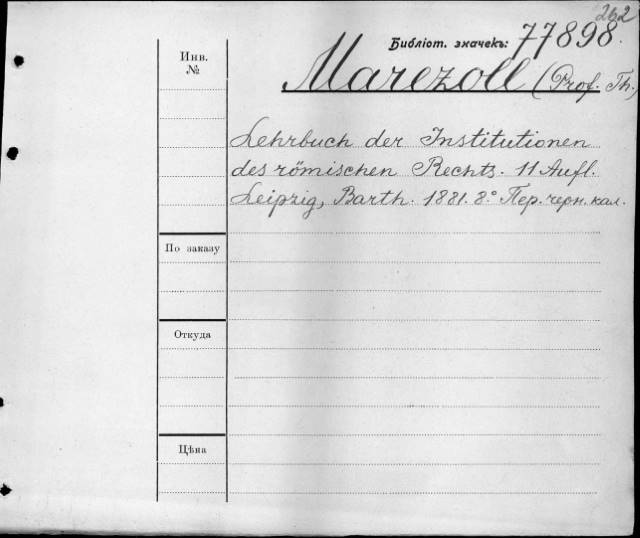 262
Библіот. значекъ: 77898.
Инв.
№
Marezoll (Prof. Th.)
Lehrbuch der Institutionen
des römischen Rechts. 11 Aufl.
Leipzig, Barth. 1881. 8° Пер. черн. кал.
По заказу
Откуда
Цѣна